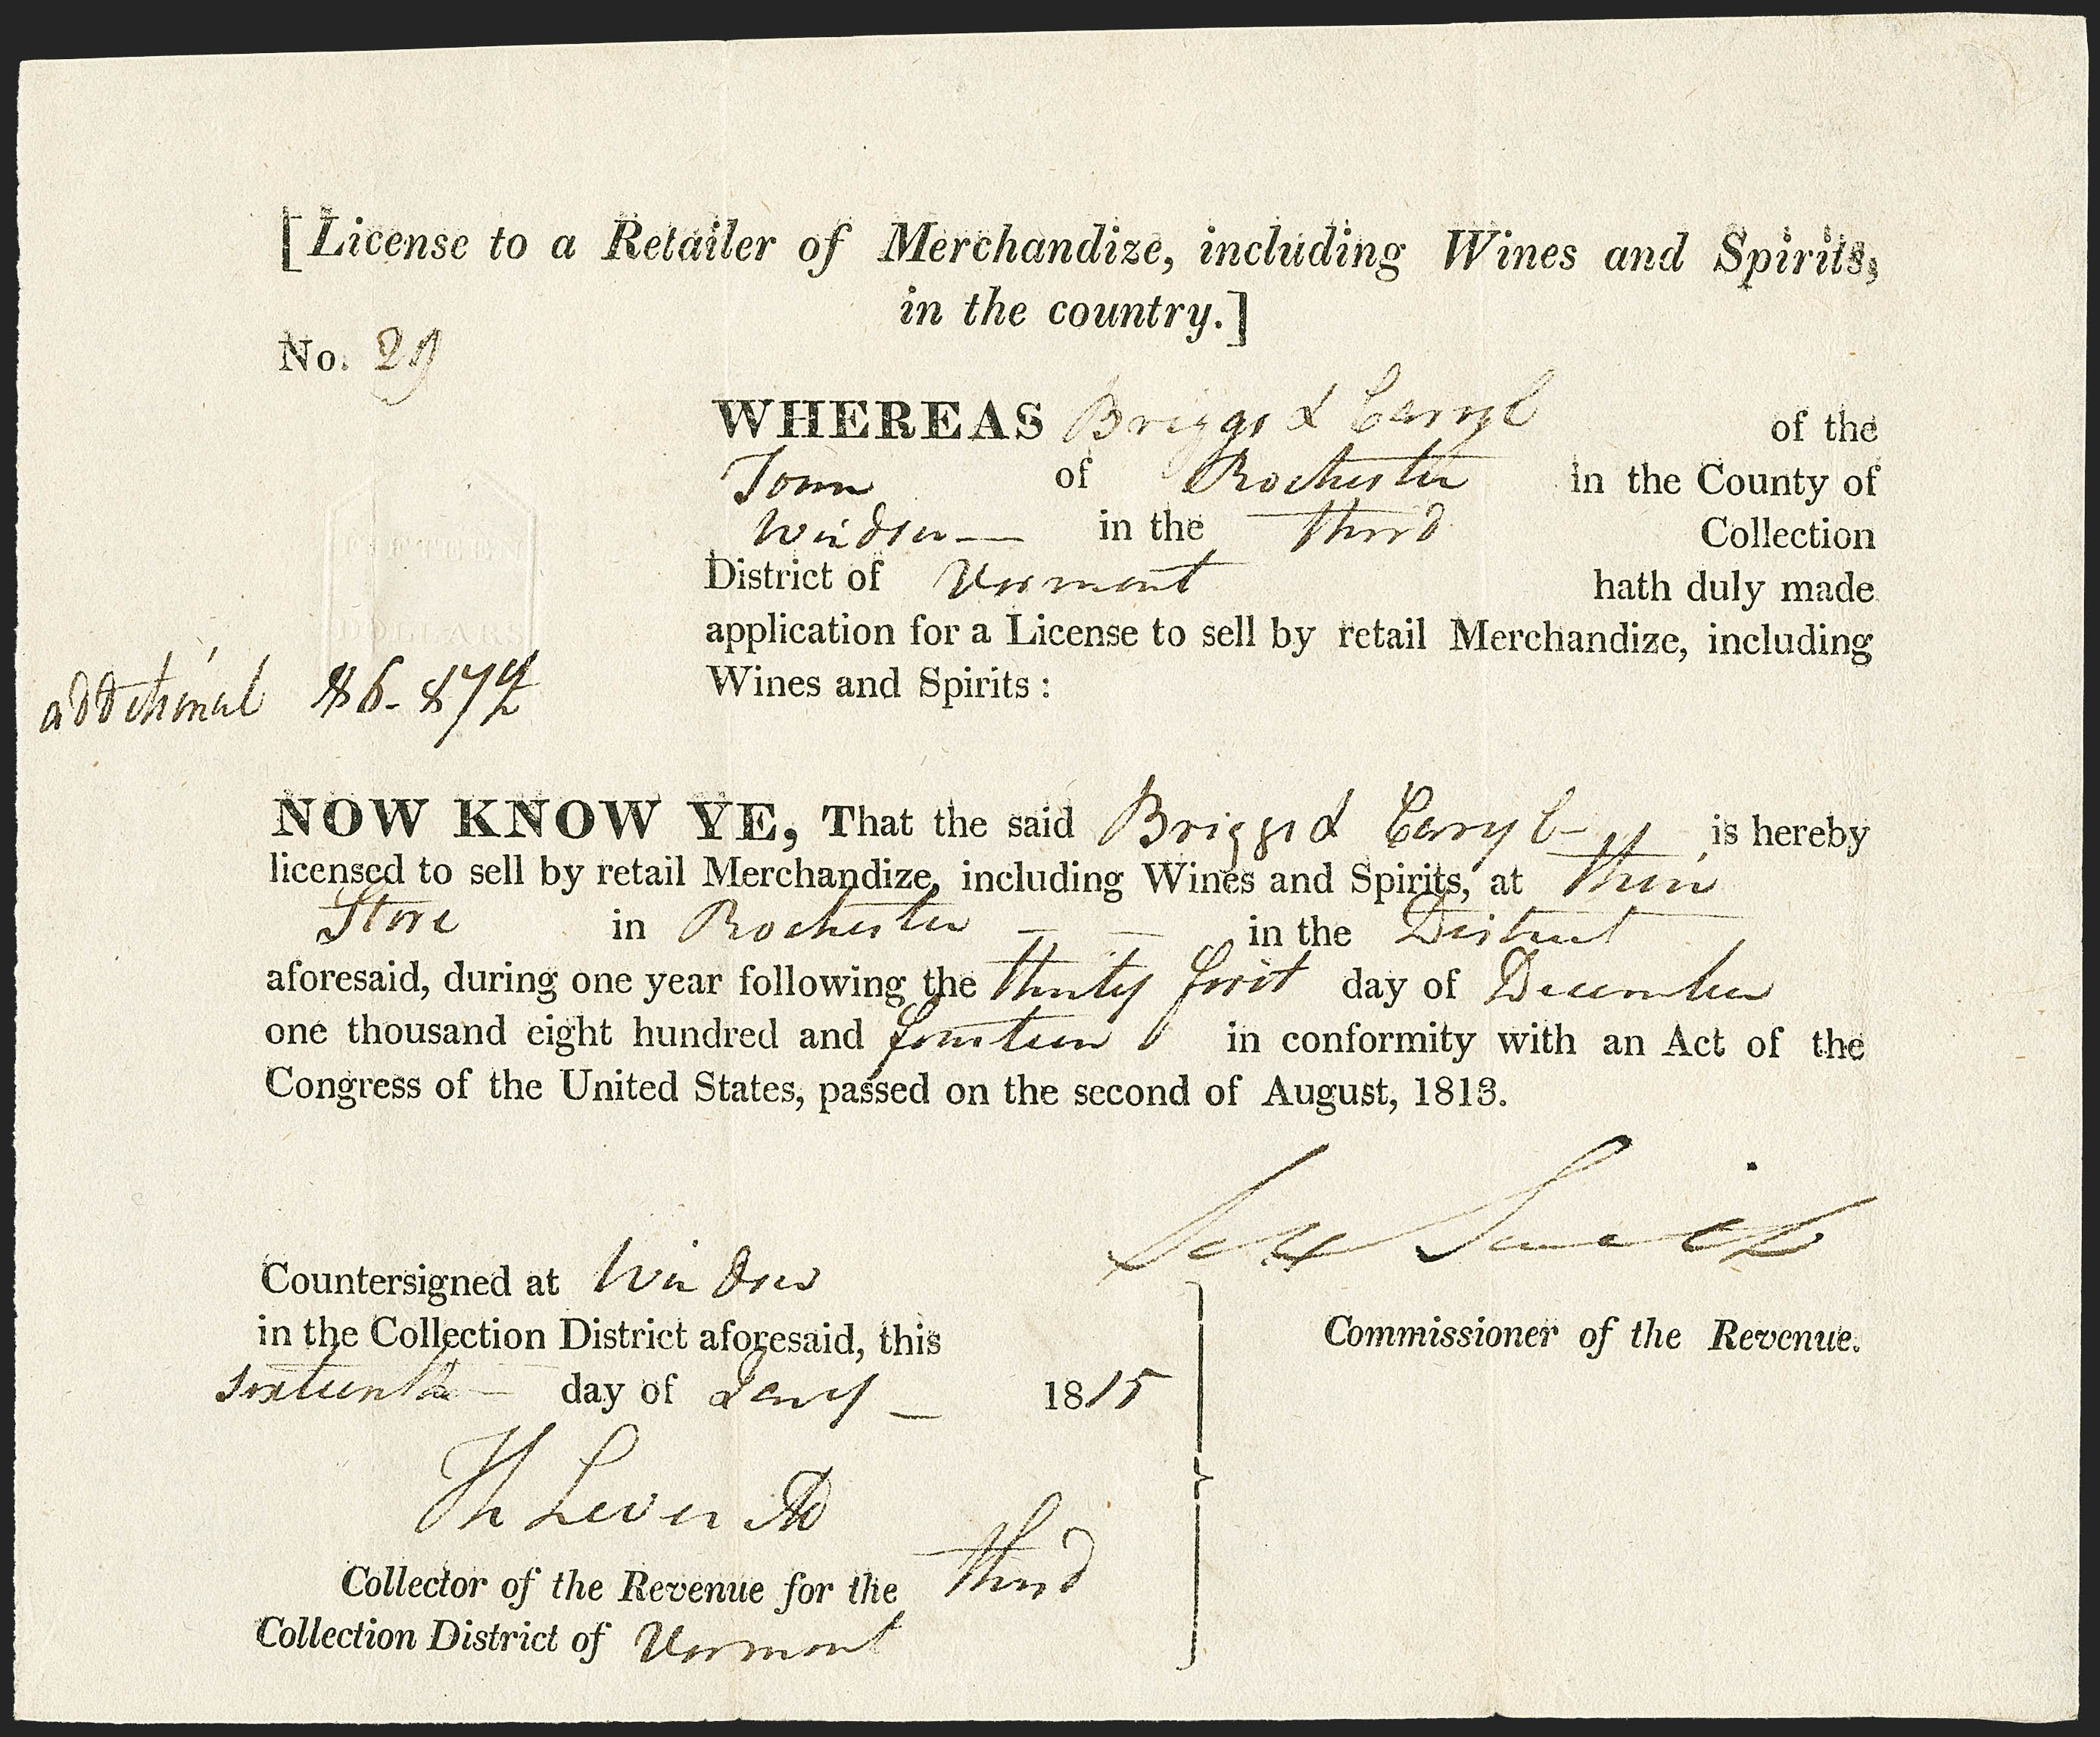 [License to a Retailer of Merchandize, including Wines and Spirits,
in the country.]
No. 29
WHEREAS Briggs & Caryl of the
Town of Rochester in the County of
Windsor — in the third Collection
District of Vermont hath duly made
application for a License to sell by retail Merchandize, including
Wines and Spirits :
FIFTEEN
DOLLARS
additional $6-87½
NOW KNOW YE, That the said Briggs & Caryl — is hereby
licensed to sell by retail Merchandize, including Wines and Spirits, at their
Store in Rochester — — in the District
aforesaid, during one year following the thirty first day of December
one thousand eight hundred and fourteen in conformity with an Act of the
Congress of the United States, passed on the second of August, 1813.
Smith
Commissioner of the Revenue.
Countersigned at Windsor
in the Collection District aforesaid, this
sixteenth — day of Jany — 1815
Th Leverett
Collector of the Revenue for the third
Collection District of Vermont